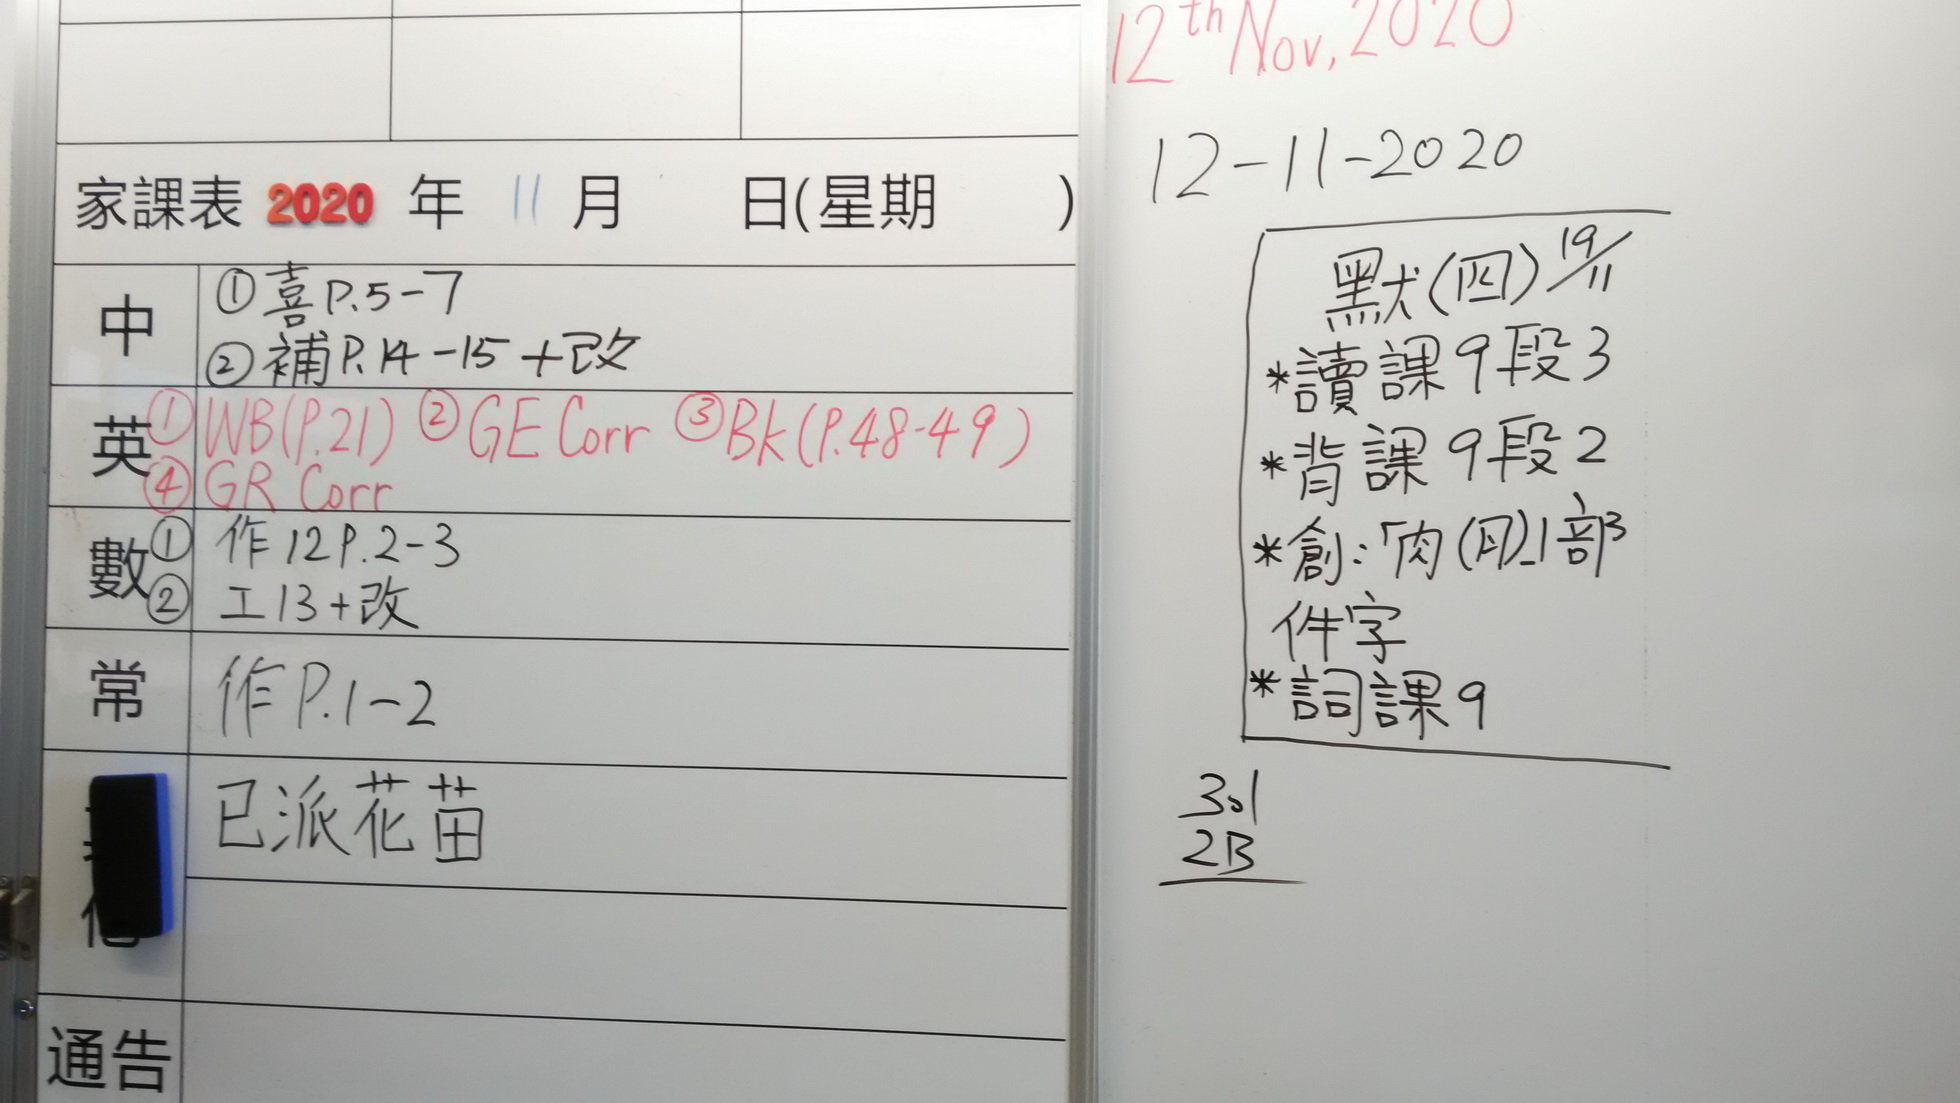 家課表 2020 年 11 月 日(星期 )
中
① 喜 P.5-7
② 補 P.14-15 + 改
英
① WB(P.21) ② GE Corr ③ Bk(P.48-49)
④ GR Corr
數
① 作12 P.2-3
② 工13 + 改
常
作 P.1-2
已派花苗
通告
12th Nov, 2020
12-11-2020
默(四) 19/11
*讀課9段3
*背課9段2
*創:「肉(月)」部
件字
*詞課9
2B